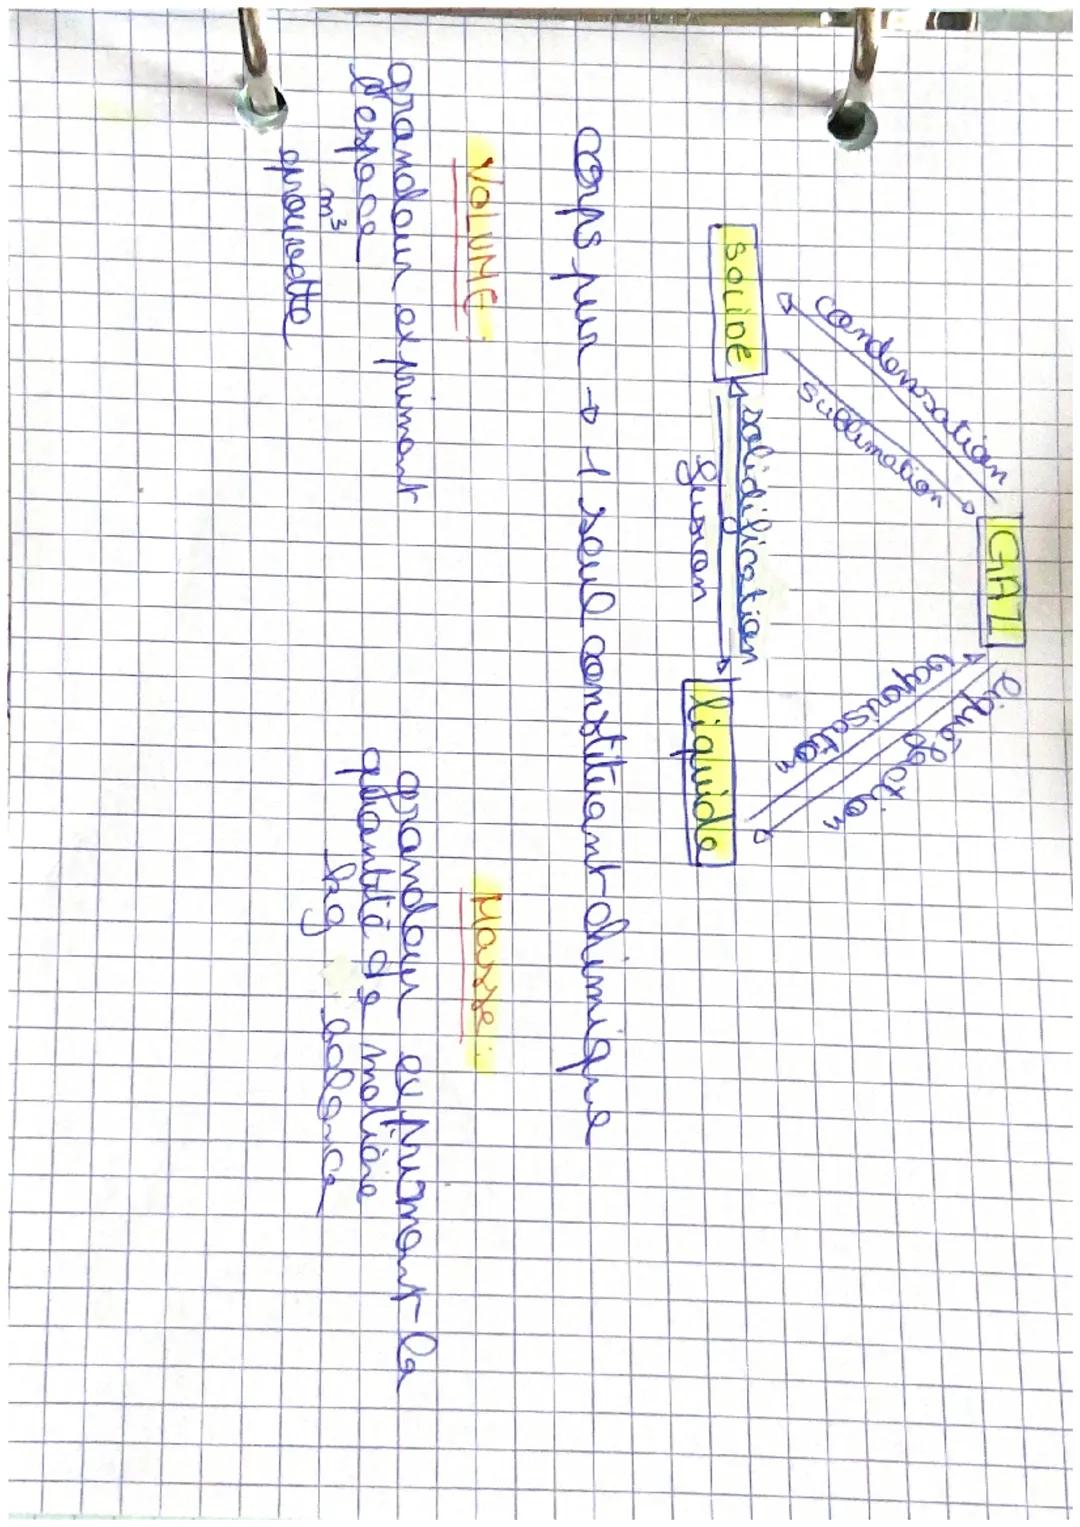 GAZ
condensation
sublimation
liquéfaction
vaporisation
SOLIDE
solidification
fusion
liquide
corps pur → 1 seul constituant chimique
VOLUME :
grandeur exprimant
l'espace
m³
éprouvette
Masse :
grandeur exprimant la
quantité de matière
kg balance